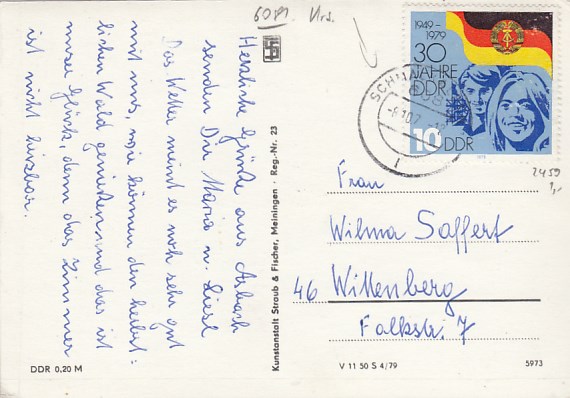 6089. Krs.
Herzliche Grüße aus Asbach
senden Dir Maria u. Liesl
Das Wetter meint es noch sehr gut
mit uns, wir können den herbst-
lichen Wald genießen und das ist
unser Glück, denn das Zimmer
ist nicht heizbar.
DDR 0,20 M
Kunstanstalt Straub & Fischer, Meiningen · Reg.-Nr. 23
1949-
1979
30
JAHRE
DDR
10 DDR
2459
1,-
Frau
Wilma Saffert
46 Wittenberg
Falkstr. 7
V 11 50 S 4/79
5973